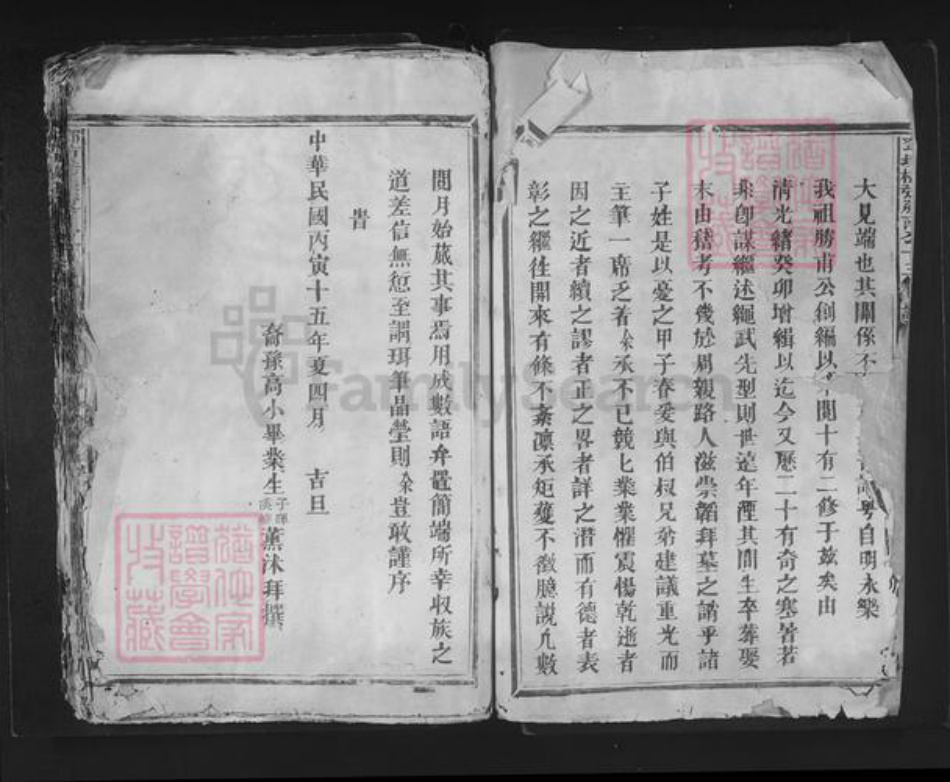 大見端也其關係不 自明永樂
我祖勝甫公創編以來閱十有二修于茲矣由
清光緒癸卯增緝以迄今又歷二十有奇之寒暑若
不卽謀繼述繩武先型則世遠年湮其間生卒葬娶
末由稽考不幾於周親路人滋崇韜拜墓之誚乎諸
子姓是以憂之甲子春爰與伯叔兄弟建議重光而
主筆一席乏著余承不已兢匕業業懼震惕乾逝者
因之近者續之謬者正之畧者詳之潛而有德者表
彰之繼往開來有條不紊凛承矩蠖不徵臆說凡數
閱月始蕆其事爲用成數語弁置簡端所幸收族之
道差信無愆至謂珥筆晶瑩則余豈敢謹序
旹
中華民國丙寅十五年夏四月 吉旦
裔孫高小畢業生 薰沐拜撰
猶他家
譜學會
收藏
猶他家
譜學會
收藏
FamilySearch